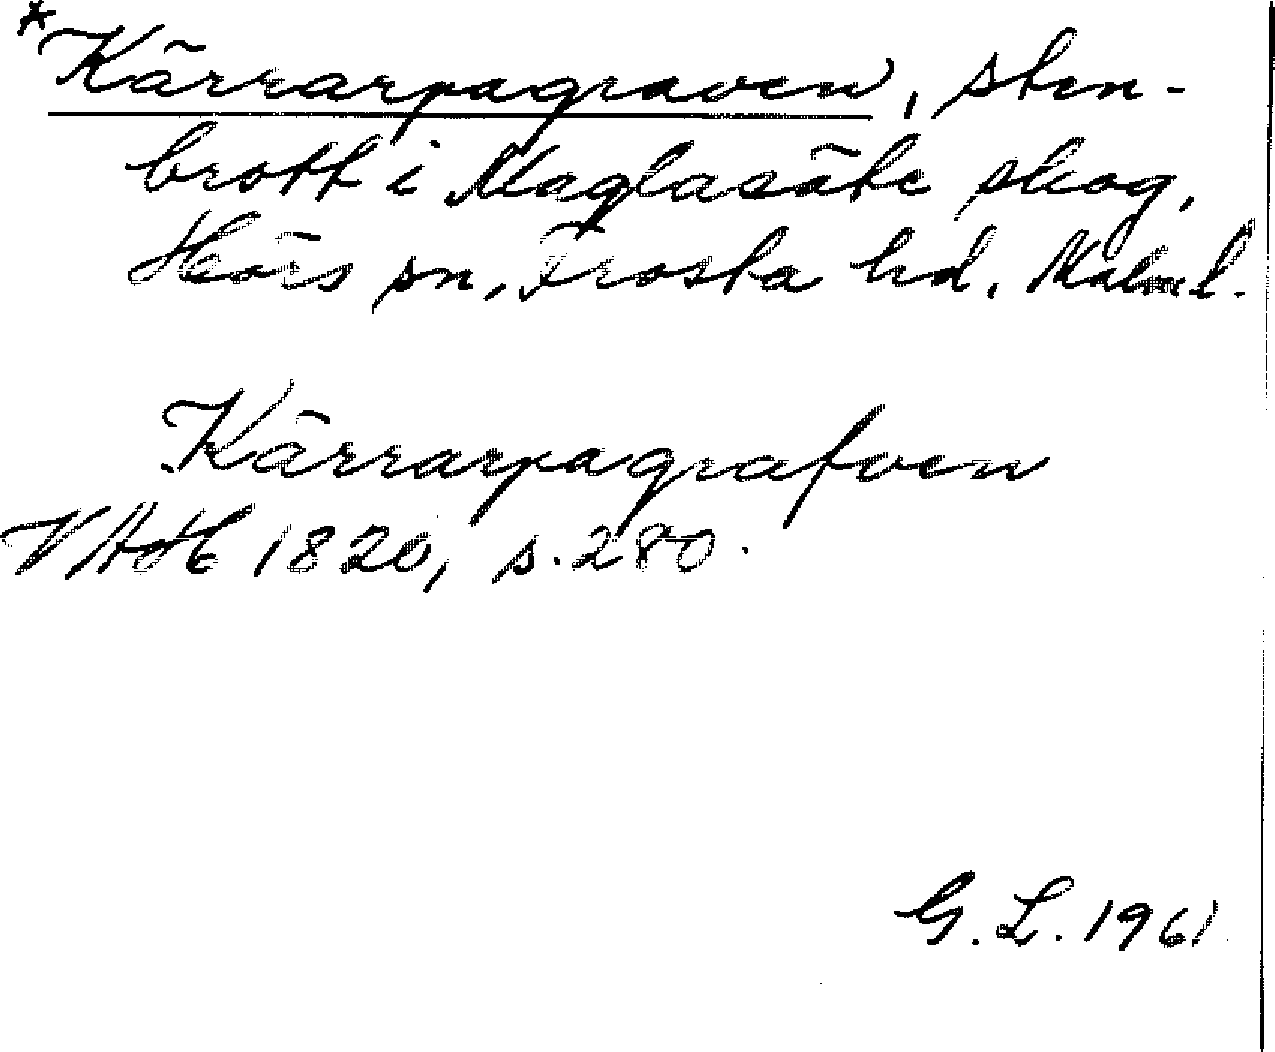 *Kärrarpagraven, sten-
brott i Maglasäte skog,
Hörs sn, Frosta hd, Malm.l.
Kärrarpagrafven
VAH 1820, s. 280.
G. L. 1961